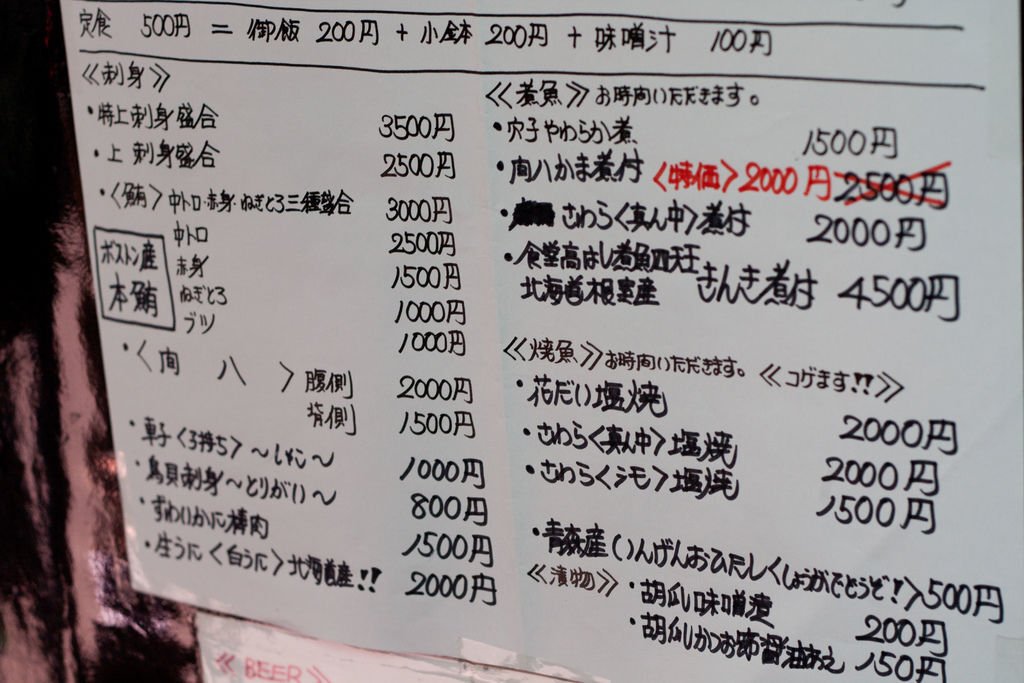 定食 500円 = 御飯 200円 + 小鉢 200円 + 味噌汁 100円
≪刺身≫
・特上刺身盛合 3500円
・上 刺身盛合 2500円
・〈鮪〉中トロ・赤身・ねぎとろ三種盛合 3000円
ボストン産
本鮪
中トロ 2500円
赤身 1500円
ねぎとろ 1000円
ブツ 1000円
・〈間 八〉腹側 2000円
背側 1500円
・車子〈子持ち〉〜しゃこ〜 1000円
・鳥貝刺身〜とりがい〜 800円
・ずわいかに棒肉 1500円
・生うに〈白うに〉北海道産!! 2000円
≪煮魚≫お時間いただきます。
・穴子やわらか煮 1500円
・間八かま煮付〈特価〉2000円 2500円
・さわら〈真ん中〉煮付 2000円
・食堂高はし煮魚四天王
北海道根室産 きんき煮付 4500円
≪焼魚≫お時間いただきます。≪コゲます!!≫
・花だい塩焼 2000円
・さわら〈真ん中〉塩焼 2000円
・さわら〈シモ〉塩焼 1500円
・青森産〈いんげんおひたししょうがでどうぞ!〉500円
≪漬物≫
・胡瓜味噌漬 200円
・胡瓜かつお節醤油あえ 150円
≪BEER≫